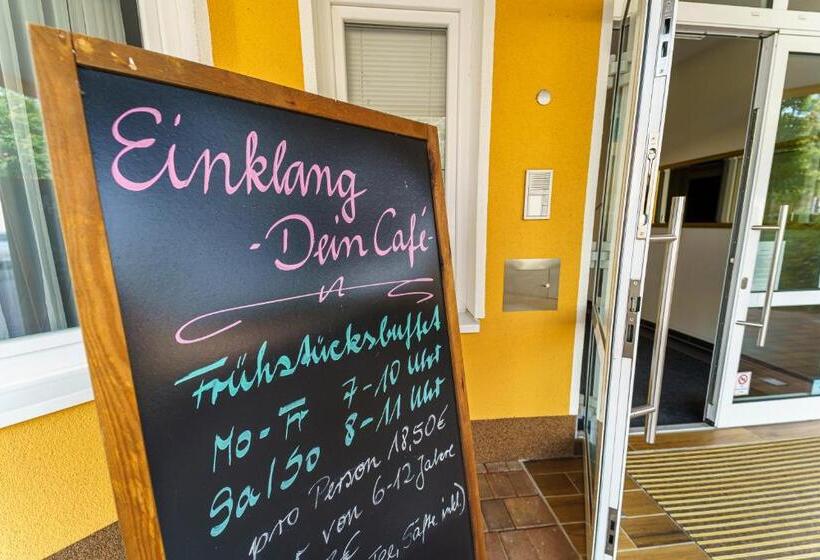 Einklang
- Dein Café -
Frühstücksbuffet
Mo - Fr 7 - 10 Uhr
Sa / So 8 - 11 Uhr
pro Person 18,50€
von 6-12 Jahre
€ Tee, Säfte inkl.)